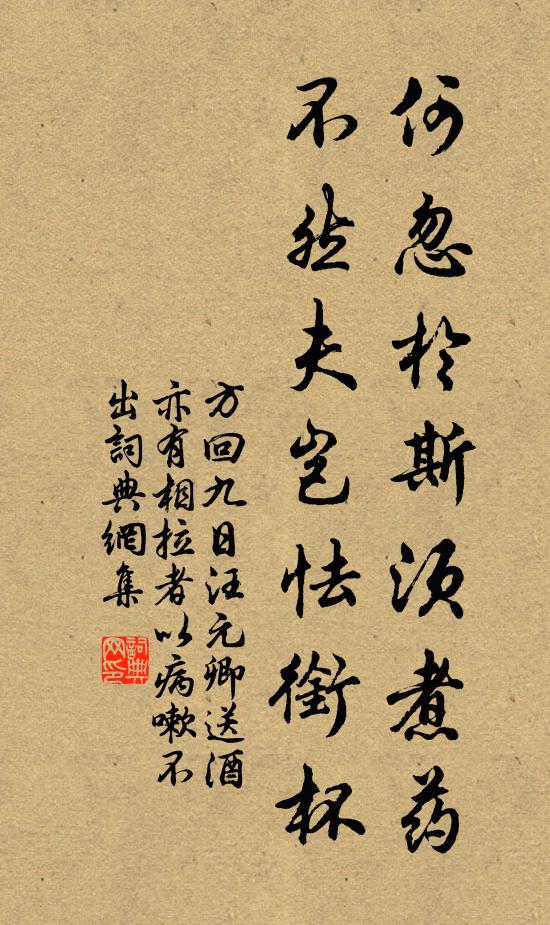 何忽於斯须煮药
不然夫岂怯銜杯
方回九日汪元卿送酒
亦有相拉者以病嗽不
出詞典網集
詞典网印